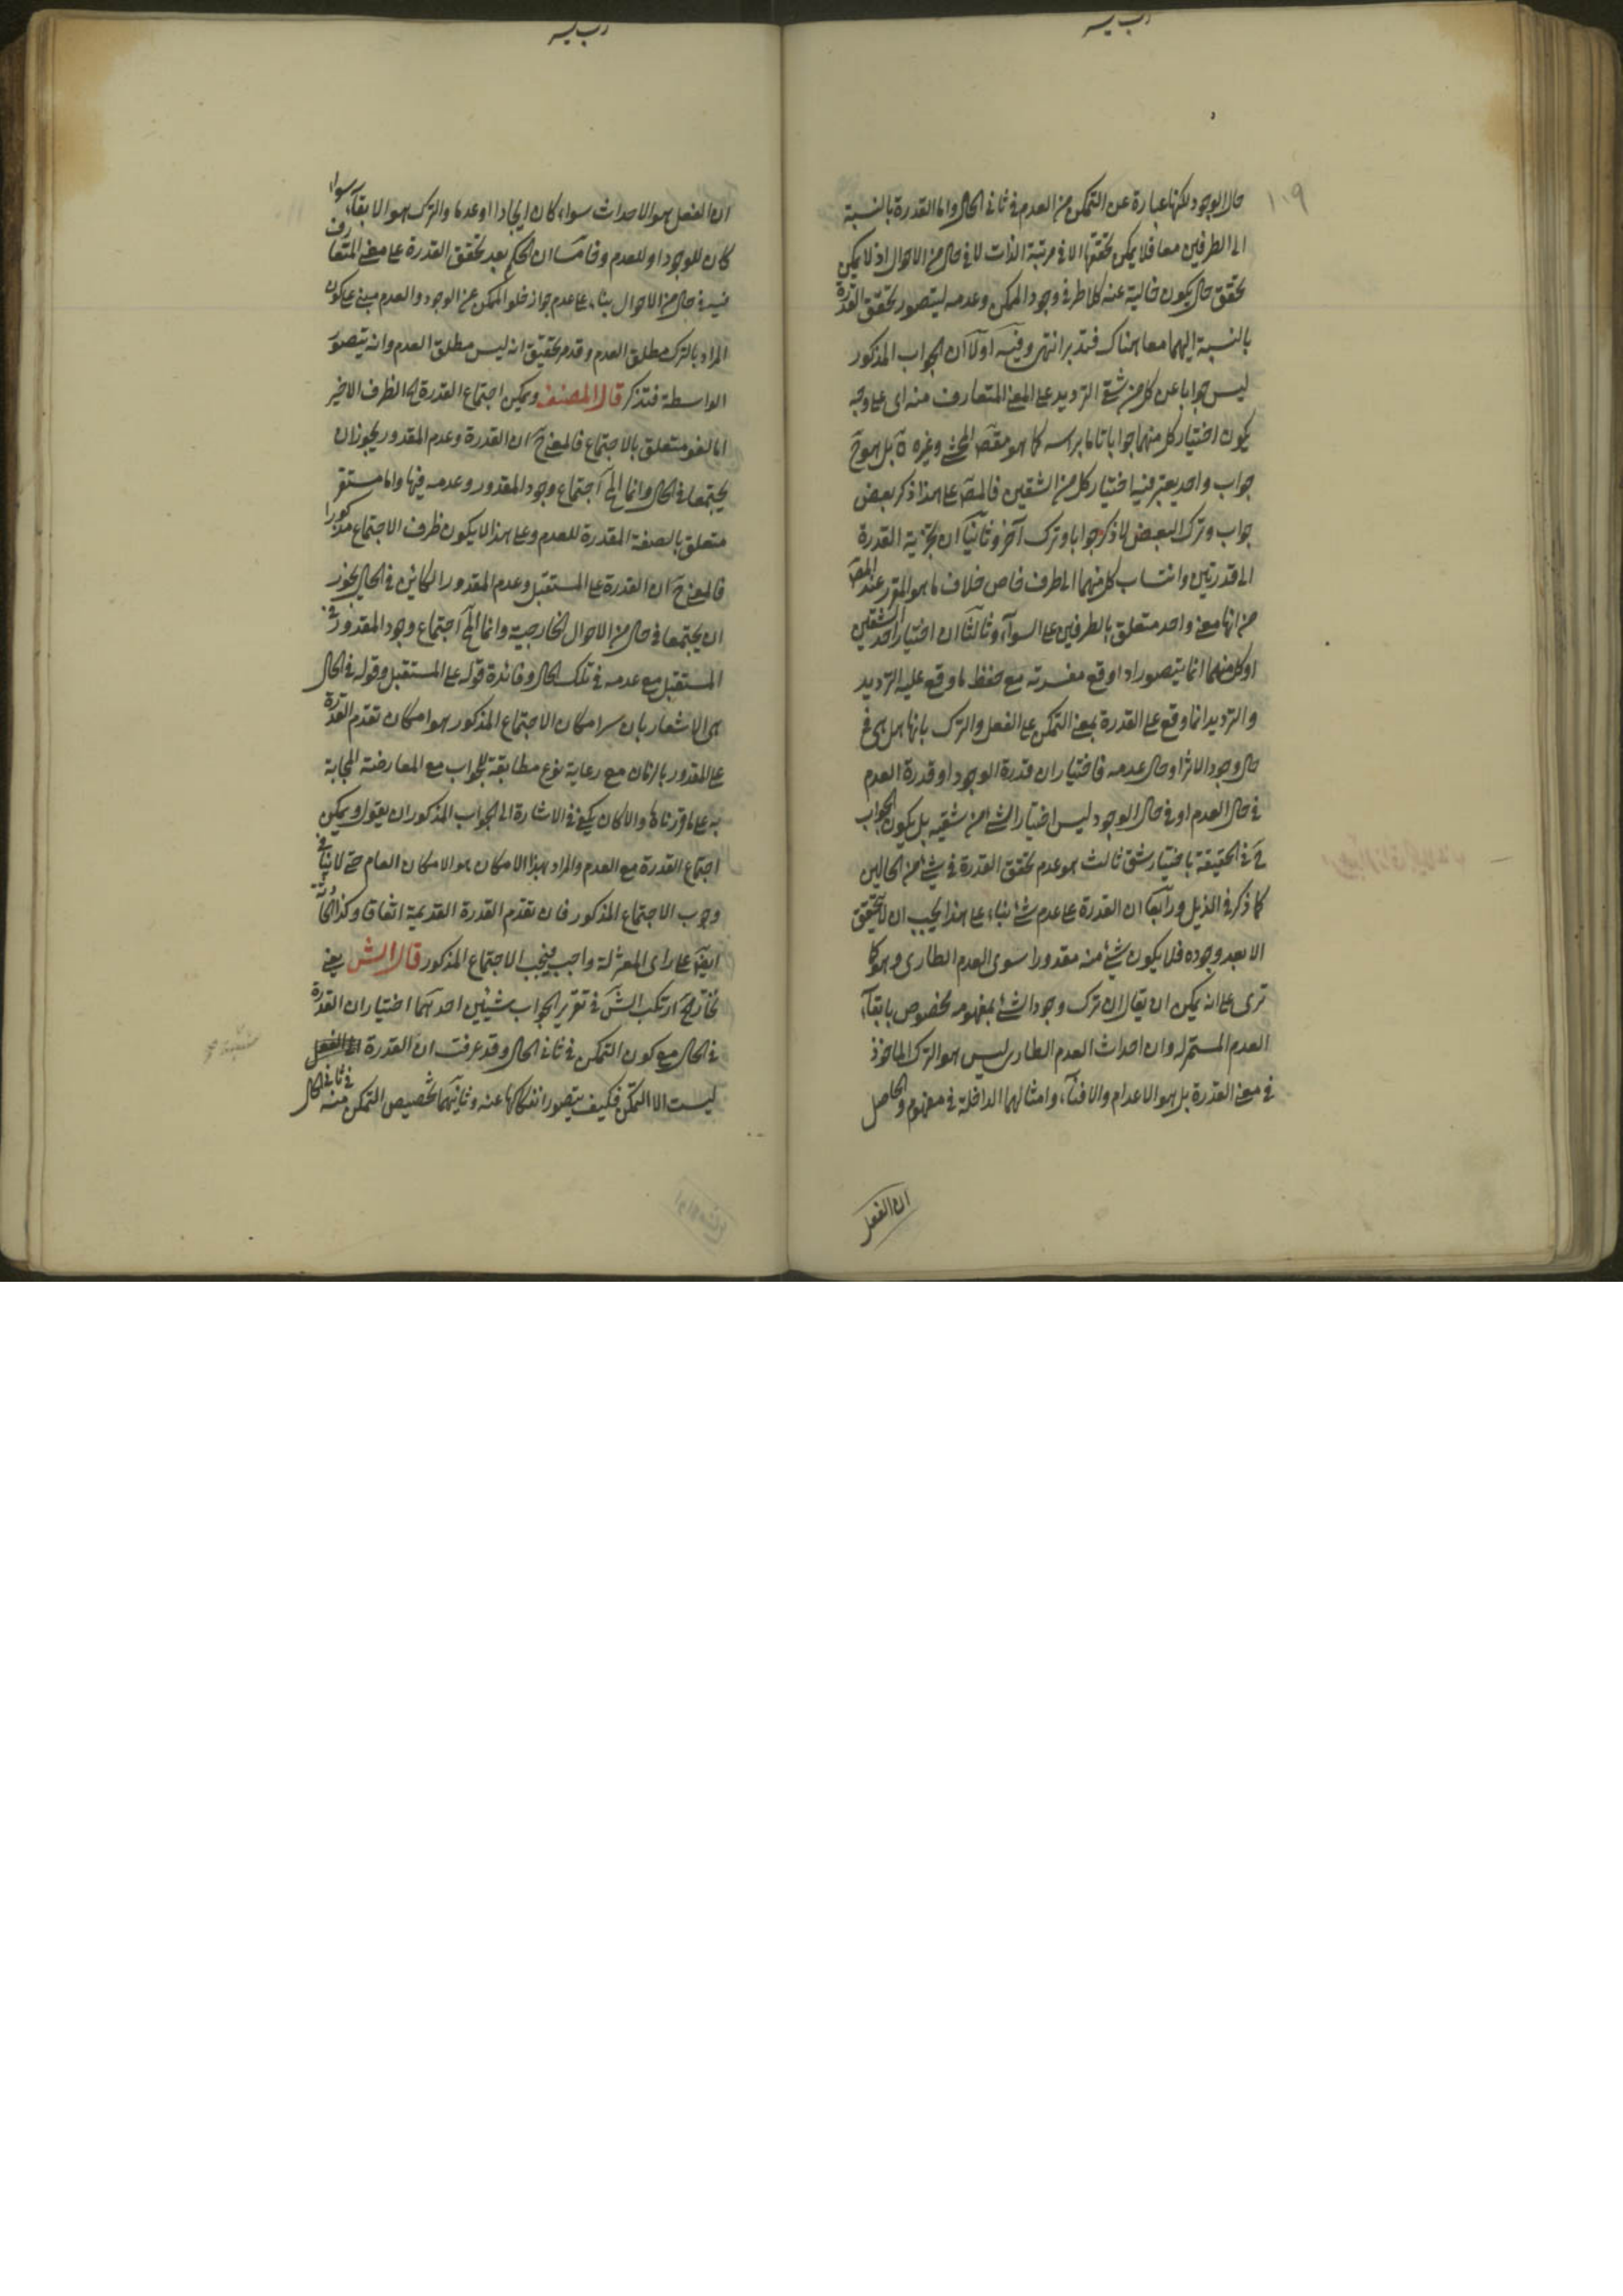 ١٠٩
حال الوجود لكنها عبارة عن التمكن من العدم في ثاني الحال واما القدرة بالنسبة
الى الطرفين معا فلا يمكن تحققها الا في مرتبة الذات لا في حال من الاحوال اذ لا يمكن
تحقق حال يكون خالية عنه كلا طرفي وجود الممكن وعدمه ليتصور تحقق القدرة
بالنسبة اليهما معا هناك فتدبر انتهى وفيه اولا ان الجواب المذكور
ليس جوابا عن كل من شقي الترديد على المعنى المتعارف منه اى على وجه
يكون اختيار كل منهما جوابا تاما براسه كما هو مقتض المحشي وغيره بل هو ح
جواب واحد يعتبر فيه اختيار كل من الشقين فالمص على هذا ذكر بعض
جواب وترك البعض لا ذكر جوابا وترك آخر وثانيا ان تجزية القدرة
الى قدرتين وانتساب كل منهما الى طرف خاص خلاف ما هو المقرر عند المص
من انها معنى واحد متعلق بالطرفين على السواء وثالثا ان اختيار احد الشقين
او كل منهما انما يتصور اذا وقع مع حفظ ما وقع عليه الترديد
والترديد انما وقع على القدرة بمعنى التمكن على الفعل والترك بانها هل هي في
حال وجود الاثر او حال عدمه فاختيار ان قدرة الوجود او قدرة العدم
في حال العدم او في حال الوجود ليس اختيار الشئ من شقيه بل يكون الجواب
ح في الحقيقة باختيار شق ثالث هو عدم تحقق القدرة في شئ من الحالين
كما ذكر في الذيل ورابعا ان القدرة على عدم شئ بناء على هذا يجب ان لا يتحقق
الا بعد وجوده فلا يكون شئ منه مقدورا سوى العدم الطارى وهو كما
ترى على انه يمكن ان يقال ان ترك وجود الشئ بمفهومه مخصوص بابقاء
العدم المستمر له وان احداث العدم الطارى ليس هو الترك الماخوذ
في معنى القدرة بل هو الاعدام والافناء وامثالهما الداخلة في مفهوم والحاصل
ان الفعل
ان الفعل هو الاحداث سواء كان ايجادا او عدما والترك هو الابقاء سواء
كان للوجود او للعدم وخامسا ان الحكم بعد تحقق القدرة على معنى المتعارف
فيه في حال من الاحوال بناء على عدم جواز خلو الممكن عن الوجود والعدم مبني على كون
المراد بالترك مطلق العدم وقد مر تحقيق انه ليس مطلق العدم وانه يتصور
الواسطة فتذكر قال المصنف ويمكن اجتماع القدرة اه الظرف الاخير
اما لغو متعلق بالاجتماع فالمعنى ح ان القدرة وعدم المقدور يجوز ان
يجتمعا في الحال وانما المح اجتماع وجود المقدور وعدمه فيها واما مستقر
متعلق بالصفة المقدرة للعدم وعلى هذا لا يكون ظرف الاجتماع مذكورا
فالمعنى ح ان القدرة على المستقبل وعدم المقدور الكائن في الحال يجوز
ان يجتمعا في حال من الاحوال الخارجية وانما المح اجتماع وجود المقدور في
المستقبل مع عدمه في تلك الحال وفائدة قوله على المستقبل وقوله في الحال
هي الاشعار بان سر امكان الاجتماع المذكور هو امكان تقدم القدرة
على المقدور بالزمان مع رعاية نوع مطابقة للجواب مع المعارضة المجابة
به على ما قررناه والا كان يكفي في الاشارة الى الجواب المذكور ان يقول ويمكن
اجتماع القدرة مع العدم والمراد بهذا الامكان هو الامكان العام حتى لا ينافي
وجوب الاجتماع المذكور فان تقدم القدرة القديمة اتفاقا وكذا الحادثة
ايض على راى المعتزلة واجب فيجب الاجتماع المذكور قال الش يعني
نختار اه ارتكب الش في تقرير الجواب شيئين احدهما اختيار ان القدرة
في الحال مع كون التمكن في ثاني الحال وقد عرفت ان القدرة
ليست الا التمكن فكيف يتصور انفكاكها عنه وثانيهما تخصيص التمكن منه في ثاني الحال